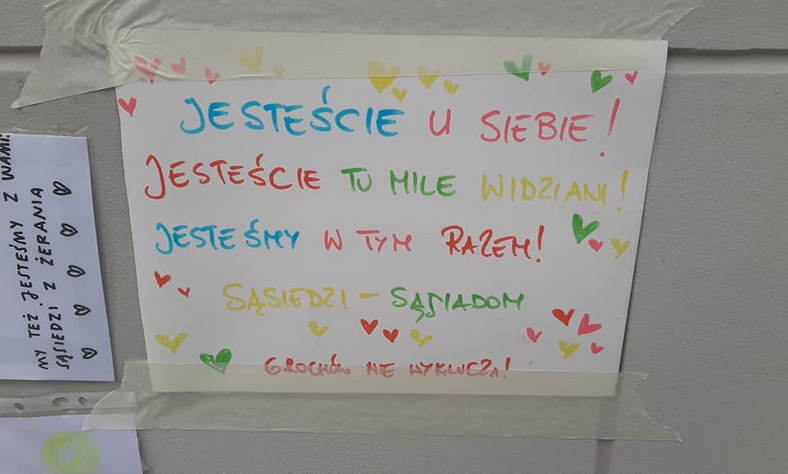 JESTEŚCIE U SIEBIE!
JESTEŚCIE TU MILE WIDZIANI!
JESTEŚMY W TYM RAZEM!
SĄSIEDZI – SĄSIADOM
GROCHÓW NIE WYKLUCZA!
MY TEŻ JESTEŚMY Z WAMI!
SĄSIEDZI Z ŻERANIA